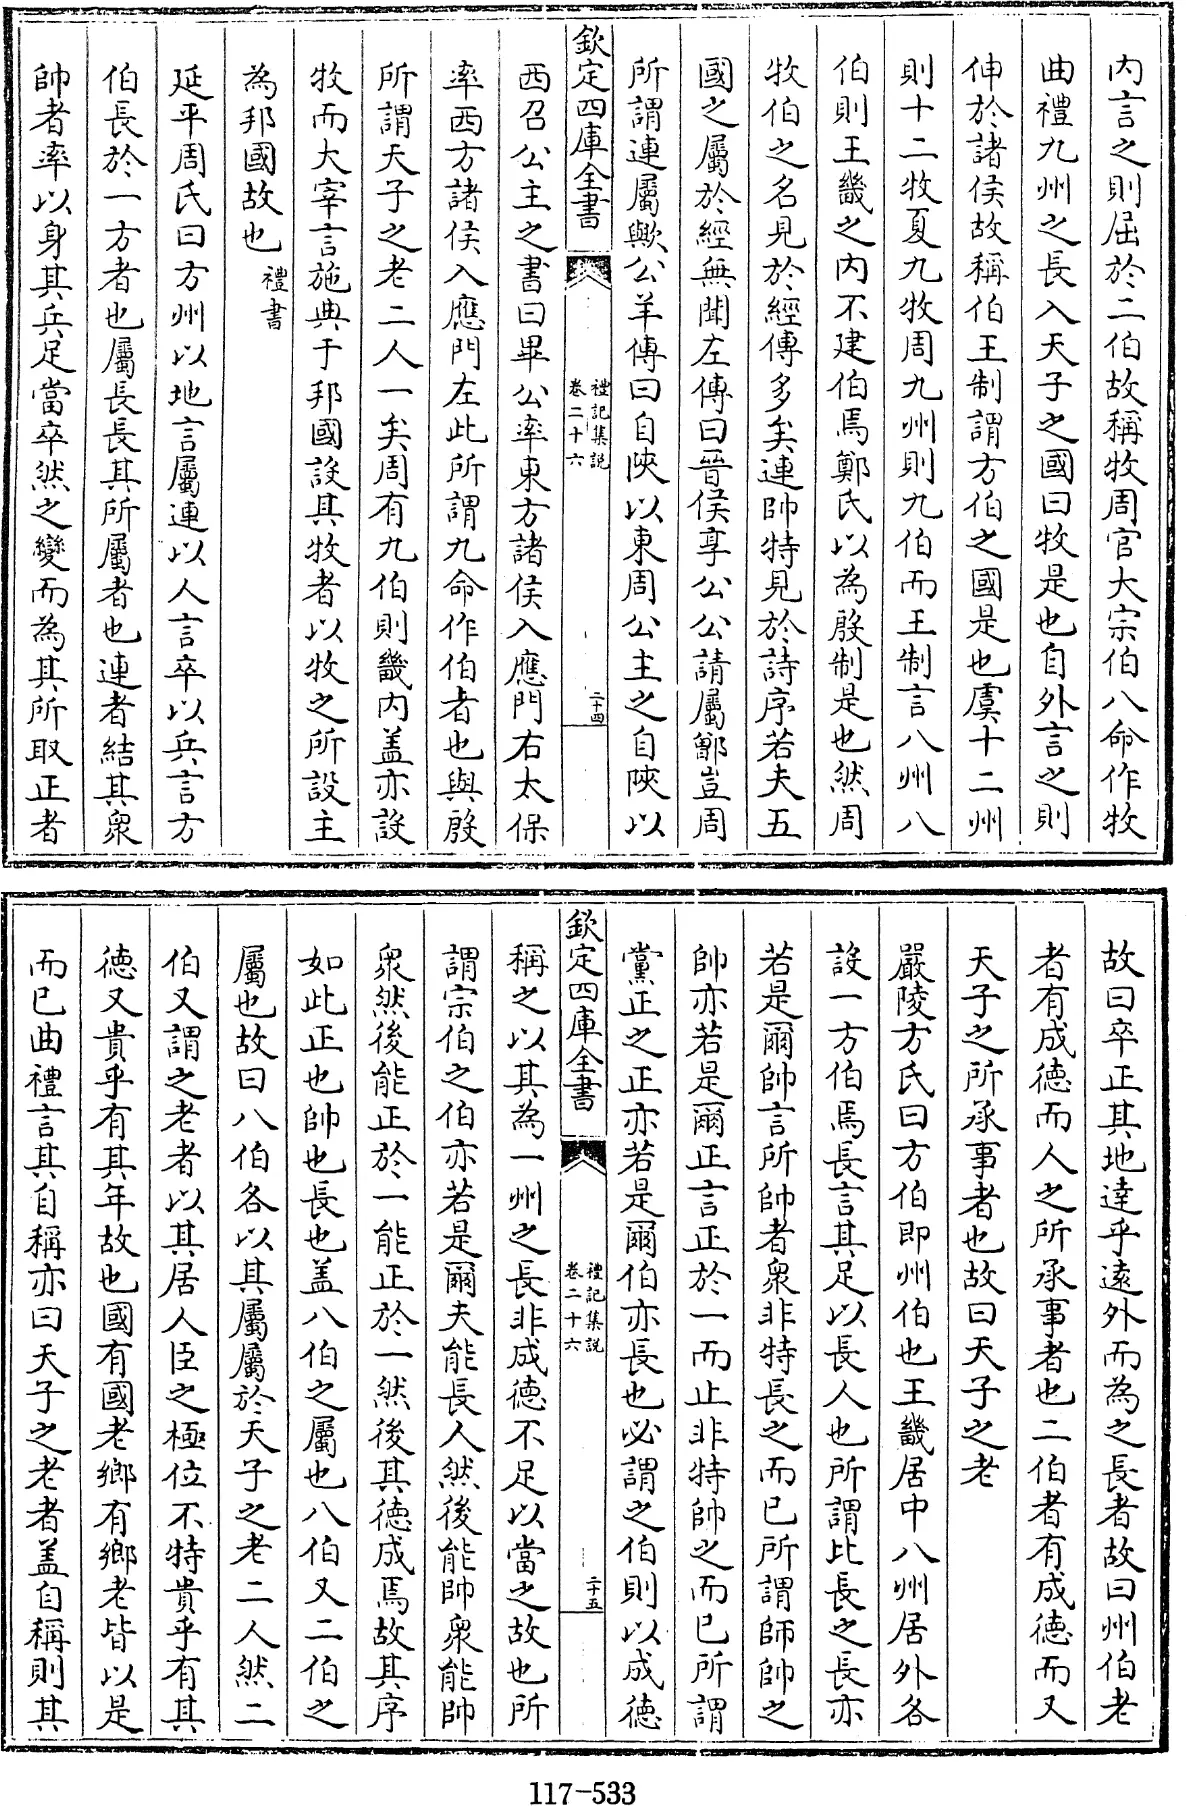 内言之則屈於二伯故稱牧周官大宗伯八命作牧
曲禮九州之長入天子之國曰牧是也自外言之則
伸於諸侯故稱伯王制謂方伯之國是也虞十二州
則十二牧夏九牧周九州則九伯而王制言八州八
伯則王畿之内不建伯焉鄭氏以為殷制是也然周
牧伯之名見於經傳多矣連帥特見於詩序若夫五
國之屬於經無聞左傳曰晉侯享公公請屬鄫豈周
所謂連屬歟公羊傳曰自陜以東周公主之自陜以
欽定四庫全書
禮記集説
卷二十六
二十四
西召公主之書曰畢公率東方諸侯入應門右太保
率西方諸侯入應門左此所謂九命作伯者也與殷
所謂天子之老二人一矣周有九伯則畿内盖亦設
牧而大宰言施典于邦國設其牧者以牧之所設主
為邦國故也禮書
延平周氏曰方州以地言屬連以人言卒以兵言方
伯長於一方者也屬長長其所屬者也連者結其衆
帥者率以身其兵足當卒然之變而為其所取正者
故曰卒正其地達乎遠外而為之長者故曰州伯老
者有成德而人之所承事者也二伯者有成德而又
天子之所承事者也故曰天子之老
嚴陵方氏曰方伯即州伯也王畿居中八州居外各
設一方伯焉長言其足以長人也所謂比長之長亦
若是爾帥言所帥者衆非特長之而已所謂師帥之
帥亦若是爾正言正於一而止非特帥之而已所謂
黨正之正亦若是爾伯亦長也必謂之伯則以成德
欽定四庫全書
禮記集説
卷二十六
二十五
稱之以其為一州之長非成德不足以當之故也所
謂宗伯之伯亦若是爾夫能長人然後能帥衆能帥
衆然後能正於一能正於一然後其德成焉故其序
如此正也帥也長也盖八伯之屬也八伯又二伯之
屬也故曰八伯各以其屬屬於天子之老二人然二
伯又謂之老者以其居人臣之極位不特貴乎有其
德又貴乎有其年故也國有國老鄉有鄉老皆以是
而已曲禮言其自稱亦曰天子之老者盖自稱則其
117-533